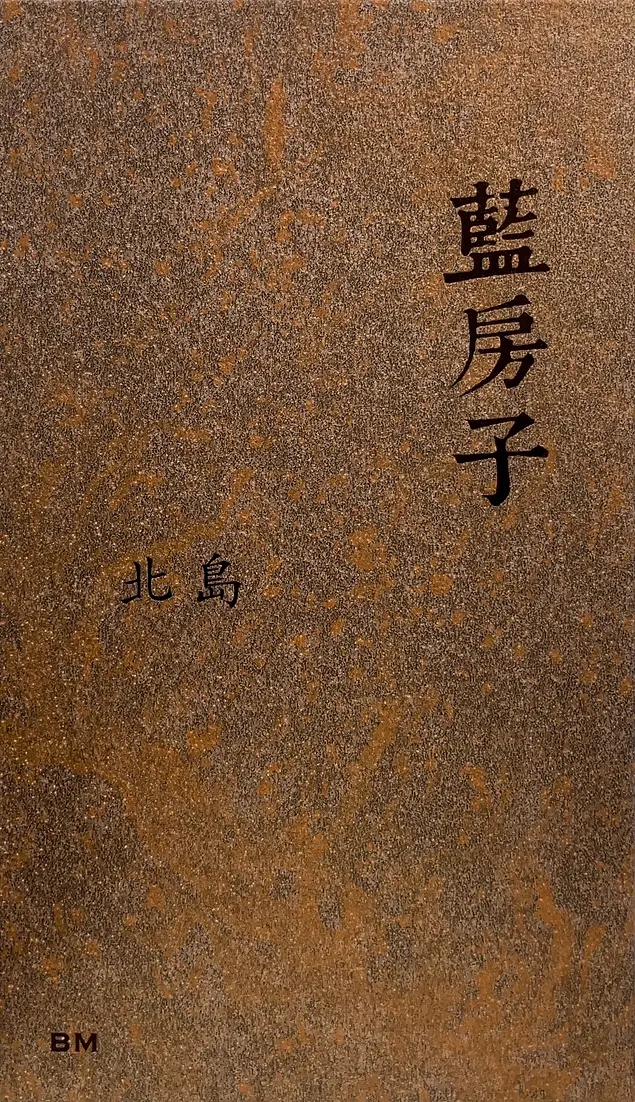 藍房子
北島
BM